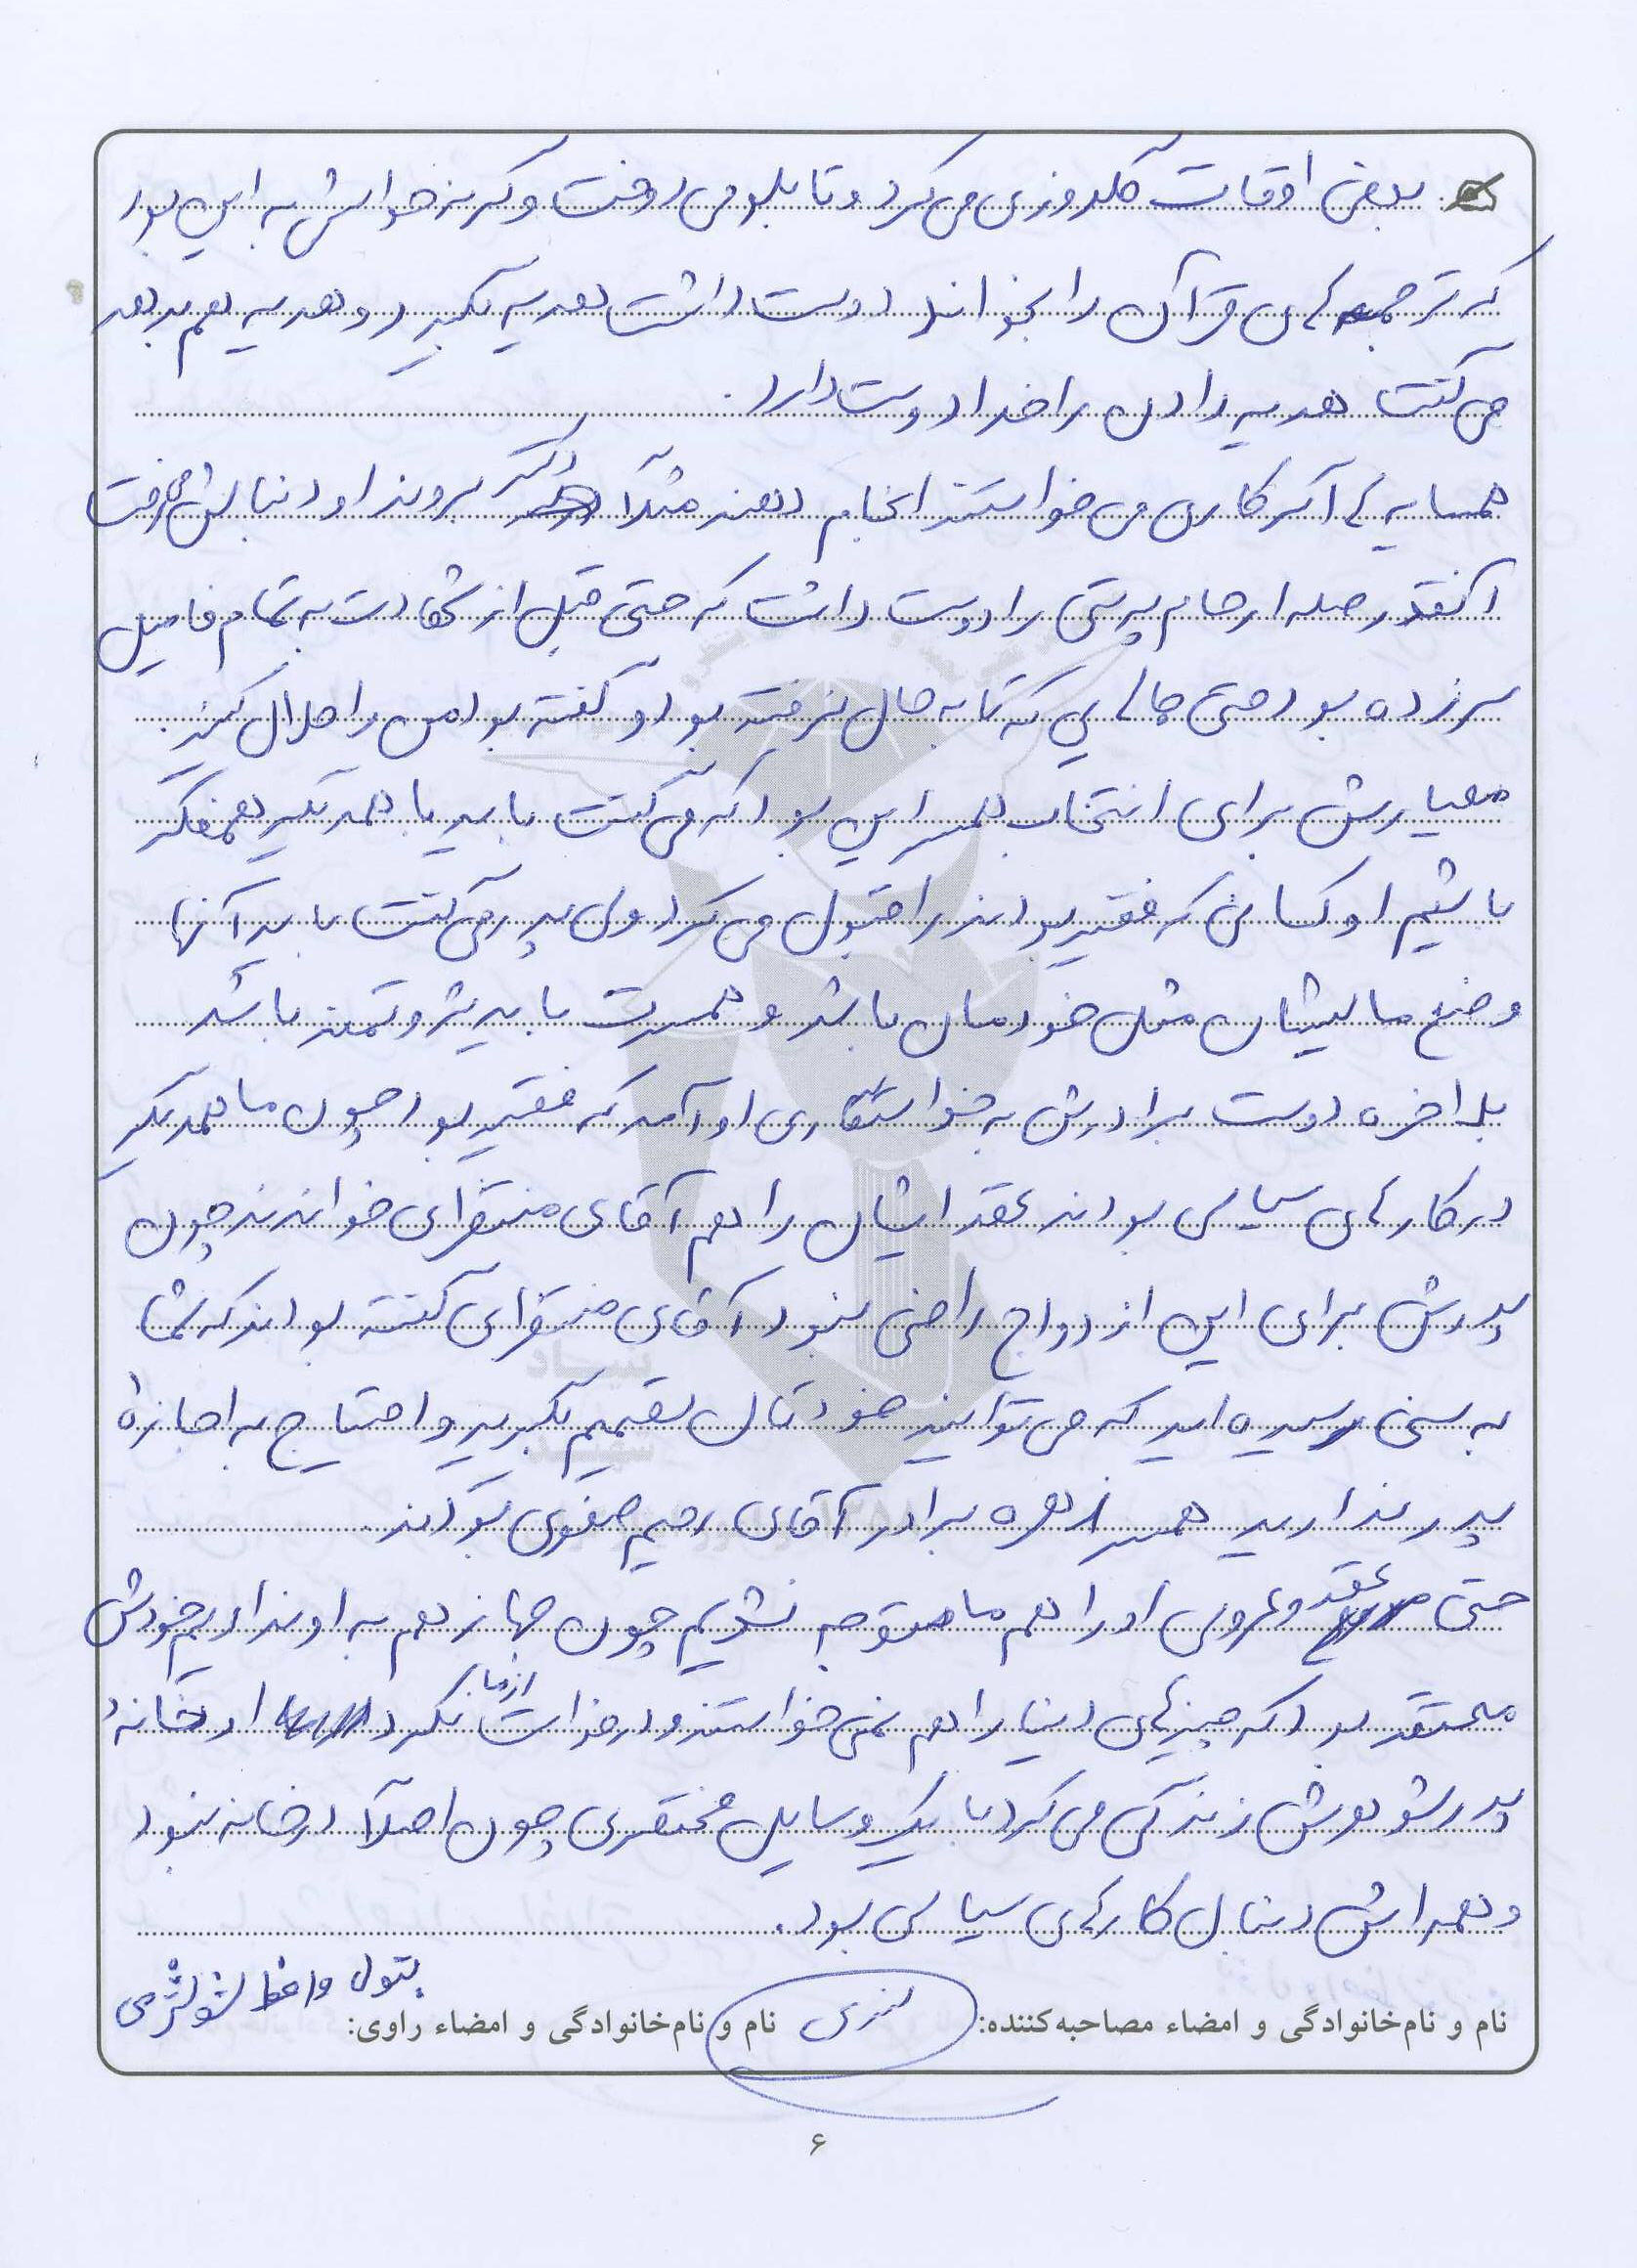 بعضی اوقات گلدوزی می کرد و تابلو می دوخت وگرنه حواسش به این بود
که ترجمه های قرآن را بخواند دوست داشت هدیه بگیرد و هدیه هم بدهد
می گفت هدیه دادن را خدا دوست دارد.
همسایه ها اگر کاری می خواستند انجام دهند مثلاً دکتر بروند او دنبالش می رفت
آنقدر صله ارحام پرستی را دوست داشت که حتی قبل از شهادت به تمام فامیل
سر زده بود حتی جاهایی که تا به حال نرفته بود و گفته بود من را حلال کنید.
معیارش برای انتخاب همسر این بود که می گفت باید با همدیگر همفکر
باشیم او کسانی که فقیر بودند را قبول می کرد ولی پدر می گفت باید آنها
وضع مالیشان مثل خودمان باشد و همسرت باید ثروتمند باشد
بلاخره دوست برادرش به خواستگاری او آمد که فقیر بود چون با همدیگر
در کارهای سیاسی بودند عقد ایشان را هم آقای منتظرای خواندند چون
پدرش برای این ازدواج راضی نبود آقای منتظرای گفته بودند که شما
به سنی رسیده اید که می توانید خودتان تصمیم بگیرید و احتیاج به اجازهٔ
پدر ندارید همسر زهره برادر آقای رحیم صفوی بودند.
حتی عقد و عروسی او را هم ما متوجه نشدیم چون جهاز هم به او ندادیم خودش
معتقد بود که چیزهای دنیا را هم نمی خواستند و درخواست از ما نکرد او خانهٔ
پدرشوهرش زندگی می کرد با یک وسایل مختصری چون اصلاً در خانه نبود
و همه اش دنبال کارهای سیاسی بود.
بتول واعظ
نام و نام‌خانوادگی و امضاء مصاحبه‌کننده: نام و نام‌خانوادگی و امضاء راوی:
۶